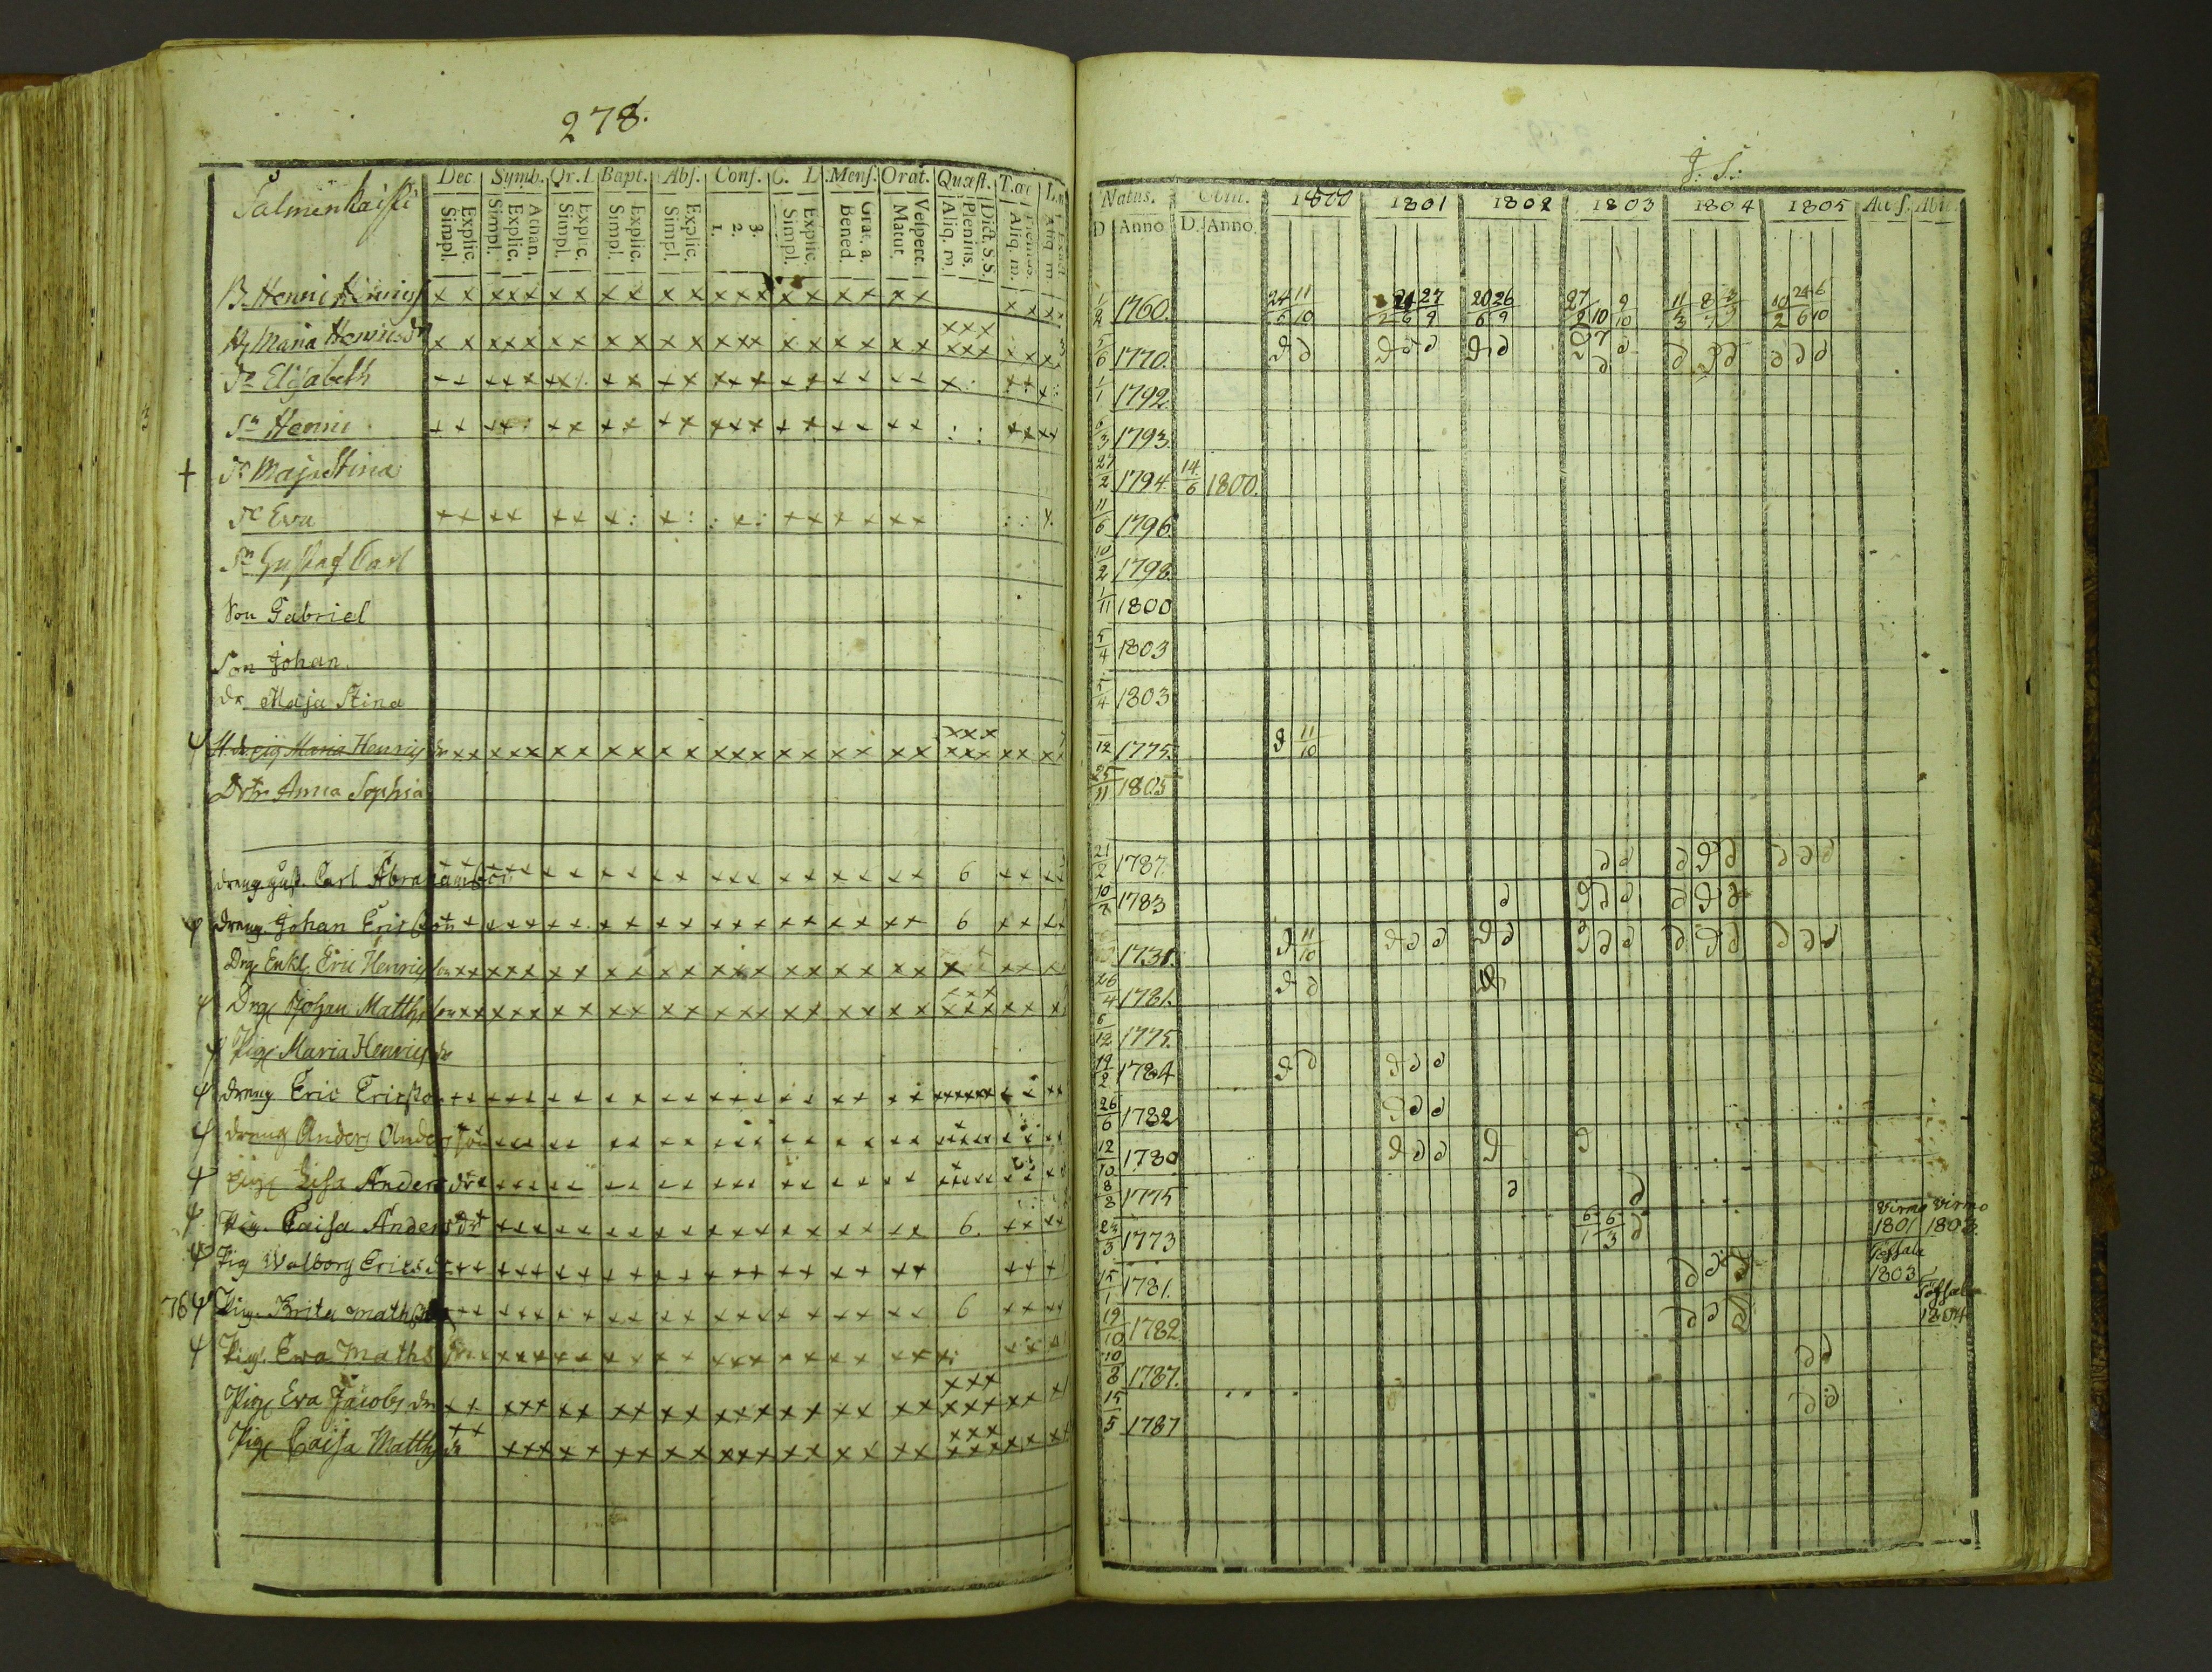 278.
Salmenkaisti
Dec. Symb. Or. D. Bapt. Abs. Conf. C. D. Mens. Orat. Quæst. T. œc
Explic. Simpl. Athan. Explic. Simpl. Explic. Simpl. Explic. Simpl. Explic. Simpl. 3. 2. 1. Explic. Simpl. Grat. a. Bened. Vespert. Matut. Dict. S.S. Plenius. Aliq. m. Plenius. Aliq. m.
B. Henric Henrics
H. Maria Henricsdr
Dr Elisabeth
Sn Henric
† Dr Maja Stina
Dr Eva
Sn Gustaf Carl
Son Gabriel
Son Johan.
dr Maja Stina
Hedvig Maria Henrics dr
Dotr Anna Sophia
dreng Gust. Carl Abrahamsson 6
dreng Johan Ericsson 6
Drg Enkl. Eric Henricsson
Drg Johan Matthsson
Pig Maria Henrics dr
dreng Eric Ericsson
dreng Anders Andersson
Pig Lisa Anders dr
Pig. Caisa Anders dr 6.
Pig Walborg Erics dr
76 Pig. Brita Maths dr 6
Pig. Ewa Maths dr
Pig Eva Jacobs dr
Pig Caisa Matths dr
J. S.:
Natus. Obiit. 1800 1801 1802 1803 1804 1805 Acces. Abit.
D. Anno D. Anno.
1/2 1760. 24/5 11/10 27/9 20/6 26/9 27/2 10 9/10 11/3 10/2 24/6 6/10
5/6 1770.
1/1 1792.
6/3 1793.
27/2 1794. 14/6 1800.
11/6 1796.
10/2 1798.
1/11 1800
5/4 1803
5/4 1803
12 1775. 11/10
25/11 1805
21/2 1787.
10/8 1783
1731. 11/10
26/4 1781.
6/12 1775.
19/2 1784
26/6 1782
12/10 1780
8/8 1775
23/3 1773 6/1 6/3 Virmo 1801 Virmo 1803.
15/1 1781. Töffsala 1803
19/10 1782. Töffsala 1804
10/8 1787.
15/5 1787